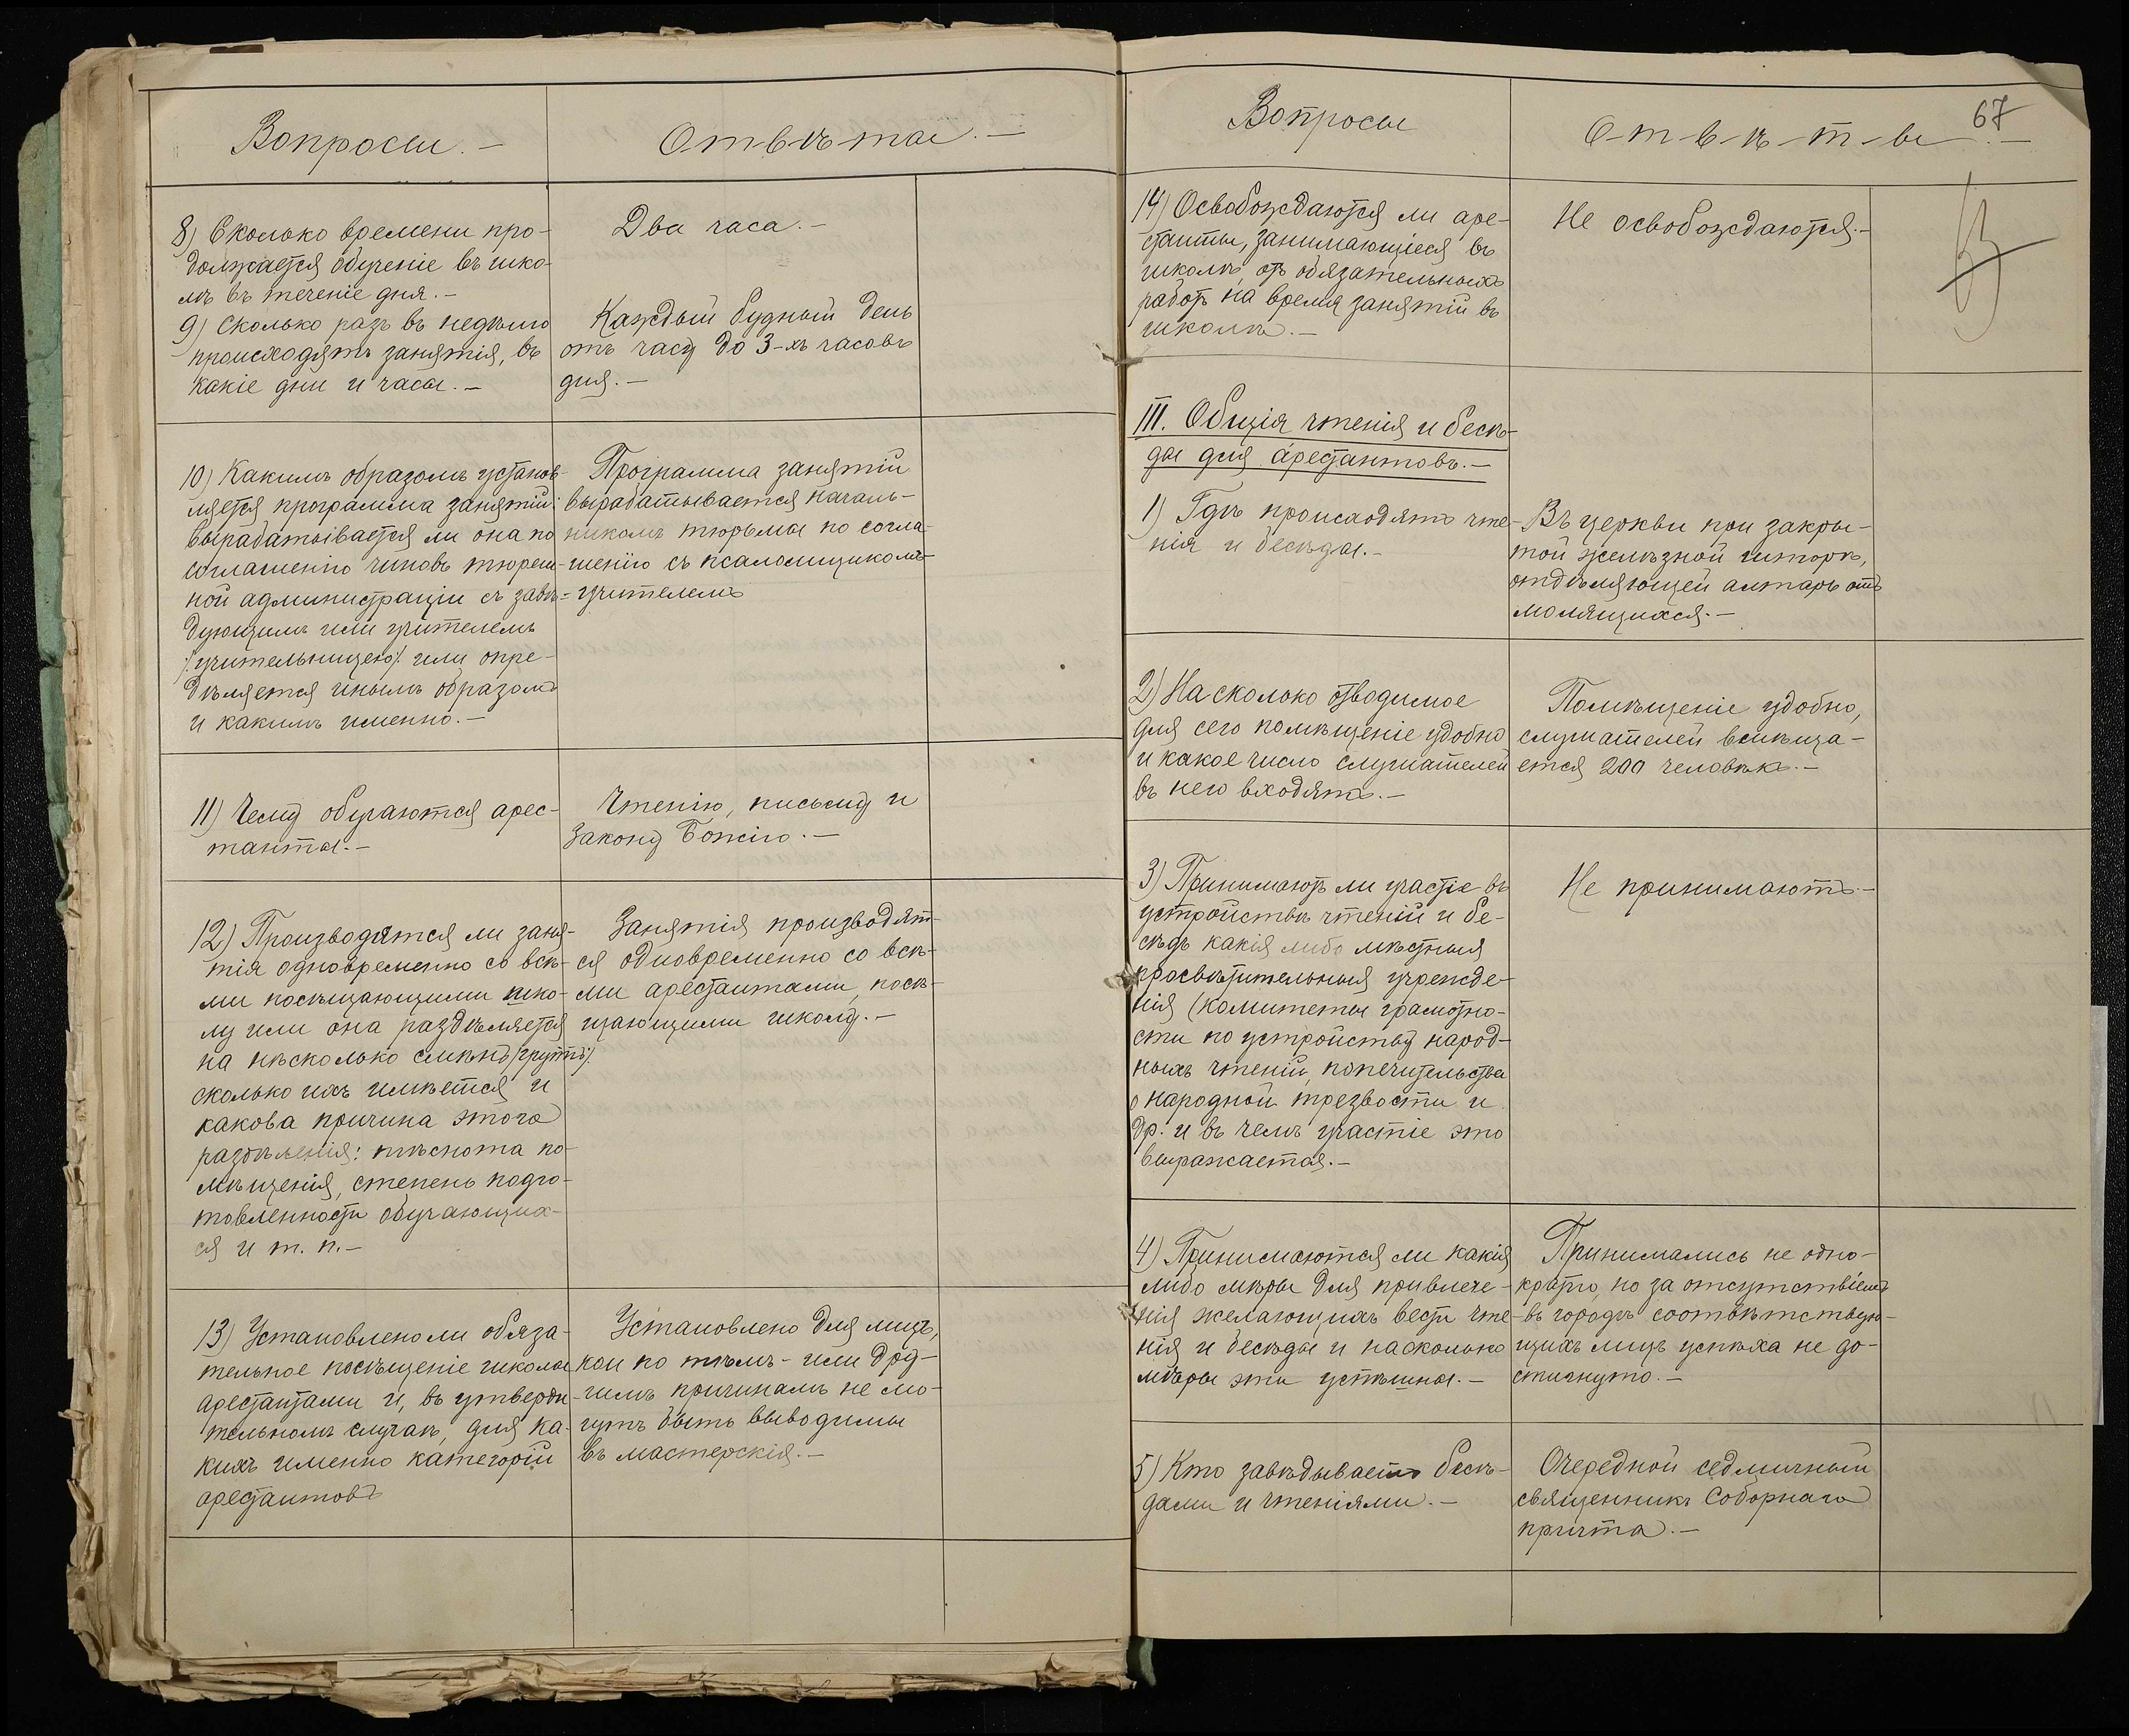 Вопросы.-
Отвѣты.-
8) Сколько времени про-
должается обученіе въ шко-
лѣ въ теченіе дня.-
Два часа.-
9) Сколько разъ въ недѣлю
происходятъ занятія, въ
какіе дни и часы.-
Каждый будный день
отъ часу до 3-хъ часовъ
дня.-
10) Какимъ образомъ установ-
ляется программа занятій:
вырабатывается ли она по
соглашенію чиновъ тюрем-
ной администраціи съ завѣ-
дующимъ или учителемъ
/учительницею/ или опре-
дѣляется инымъ образомъ
и какимъ именно.-
Программа занятій
вырабатывается началь-
никомъ тюрьмы по согла-
шенію съ псаломщикомъ-
учителемъ
11) Чему обучаются арес-
танты.-
Чтенію, письму и
Закону Божію.-
12) Производятся ли заня-
тія одновременно со всѣ-
ми посѣщающими шко-
лу или она раздѣляется
на нѣсколько смѣнъ /группъ/.
сколько ихъ имѣется и
какова причина этого
раздѣленія: тѣснота по-
мѣщенія, степень подго-
товленности обучающих-
ся и т. п.-
Занятія производят-
ся одновременно со всѣ-
ми арестантами, посѣ-
щающими школу.-
13) Установлено ли обяза-
тельное посѣщеніе школы
арестантами и, въ утверди-
тельномъ случаѣ, для ка-
кихъ именно категорій
арестантовъ
Установлено для лицъ,
кои по тѣмъ- или дру-
гимъ причинамъ не мо-
гутъ быть выводимы
въ мастерскія.-
Вопросы
О-т-в-ѣ-т-ы.-
67
14) Освобождаются ли аре-
станты, занимающіеся въ
школѣ, отъ обязательныхъ
работъ на время занятій въ
школѣ.-
Не освобождаются.-
III. Общія чтенія и бесѣ-
ды для арестантовъ.-
1) Гдѣ происходятъ чте-
нія и бесѣды.-
Въ церкви при закры-
той желѣзной шторѣ,
отдѣляющей алтарь отъ
молящихся.-
2) На сколько отводимое
для сего помѣщеніе удобно
и какое число слушателей
въ него входятъ.-
Помѣщеніе удобно,
слушателей вмѣща-
ется 200 человѣкъ.-
3) Принимаютъ ли участіе въ
устройствѣ чтеній и бе-
сѣдъ какія либо мѣстныя
просвѣтительныя учрежде-
нія (комитеты грамотно-
сти по устройству народ-
ныхъ чтеній, попечительства
о народной трезвости и
др. и въ чемъ участіе это
выражается.-
Не принимаютъ.-
4) Принимаются ли какія
либо мѣры для привлече-
нія желающихъ вести чте-
нія и бесѣды и насколько
мѣры эти успѣшны.-
Принимались не одно-
кратно, но за отсутствіемъ
въ городѣ соотвѣтствую-
щихъ лицъ успѣха не до-
стигнуто.-
5) Кто завѣдываетъ бесѣ-
дами и чтеніями.-
Очередной седмичный
священникъ Соборнаго
причта.-